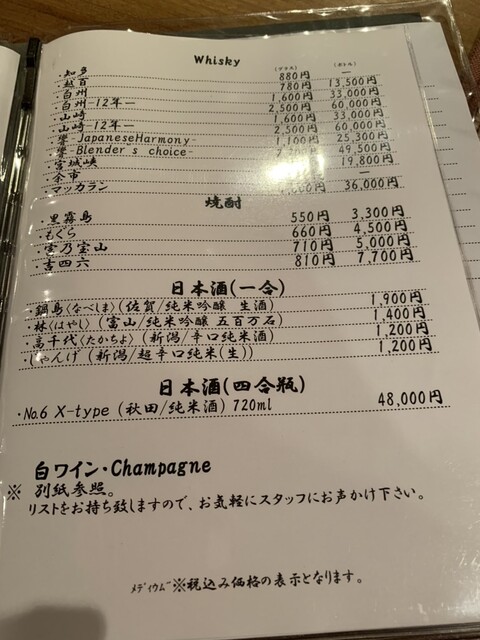 Whisky
(グラス) (ボトル)
・知多 880円 ―
・越百 780円 13,500円
・白州 1,600円 33,000円
・白州-12年― 2,500円 60,000円
・山崎 1,600円 33,000円
・山崎-12年― 2,500円 60,000円
・響-JapaneseHarmony- 1,100円 25,300円
・響-Blender's choice- 49,500円
・宮城峡 19,800円
・余市 ―
・マッカラン 36,000円
焼酎
・黒霧島 550円 3,300円
・もぐら 660円 4,500円
・富乃宝山 710円 5,000円
・吉四六 810円 7,700円
日本酒(一合)
・鍋島〈なべしま〉(佐賀/純米吟醸 生酒) 1,900円
・林〈はやし〉(富山/純米吟醸 五百万石) 1,400円
・高千代〈たかちよ〉(新潟/辛口純米酒) 1,200円
・じゃんげ (新潟/超辛口純米(生)) 1,200円
日本酒(四合瓶)
・No.6 X-type (秋田/純米酒) 720ml 48,000円
白ワイン・Champagne
※ 別紙参照。
リストをお持ち致しますので、お気軽にスタッフにお声かけ下さい。
ﾒﾃﾞｨｳﾑﾞ※税込み価格の表示となります。